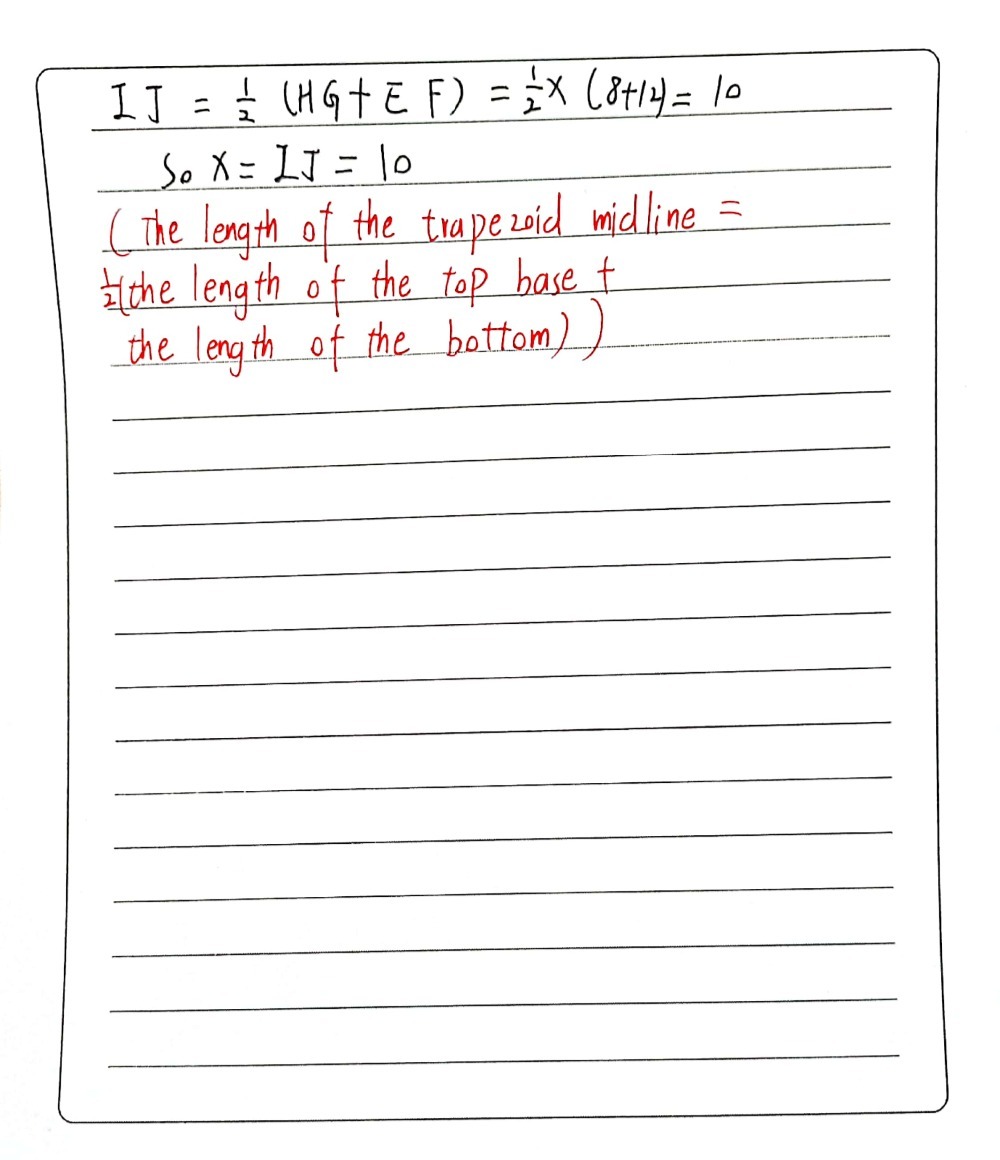 IJ = 1/2 (HG + EF) = 1/2 × (8+12) = 10
So X = IJ = 10
(The length of the trapezoid midline =
1/2(the length of the top base +
the length of the bottom))